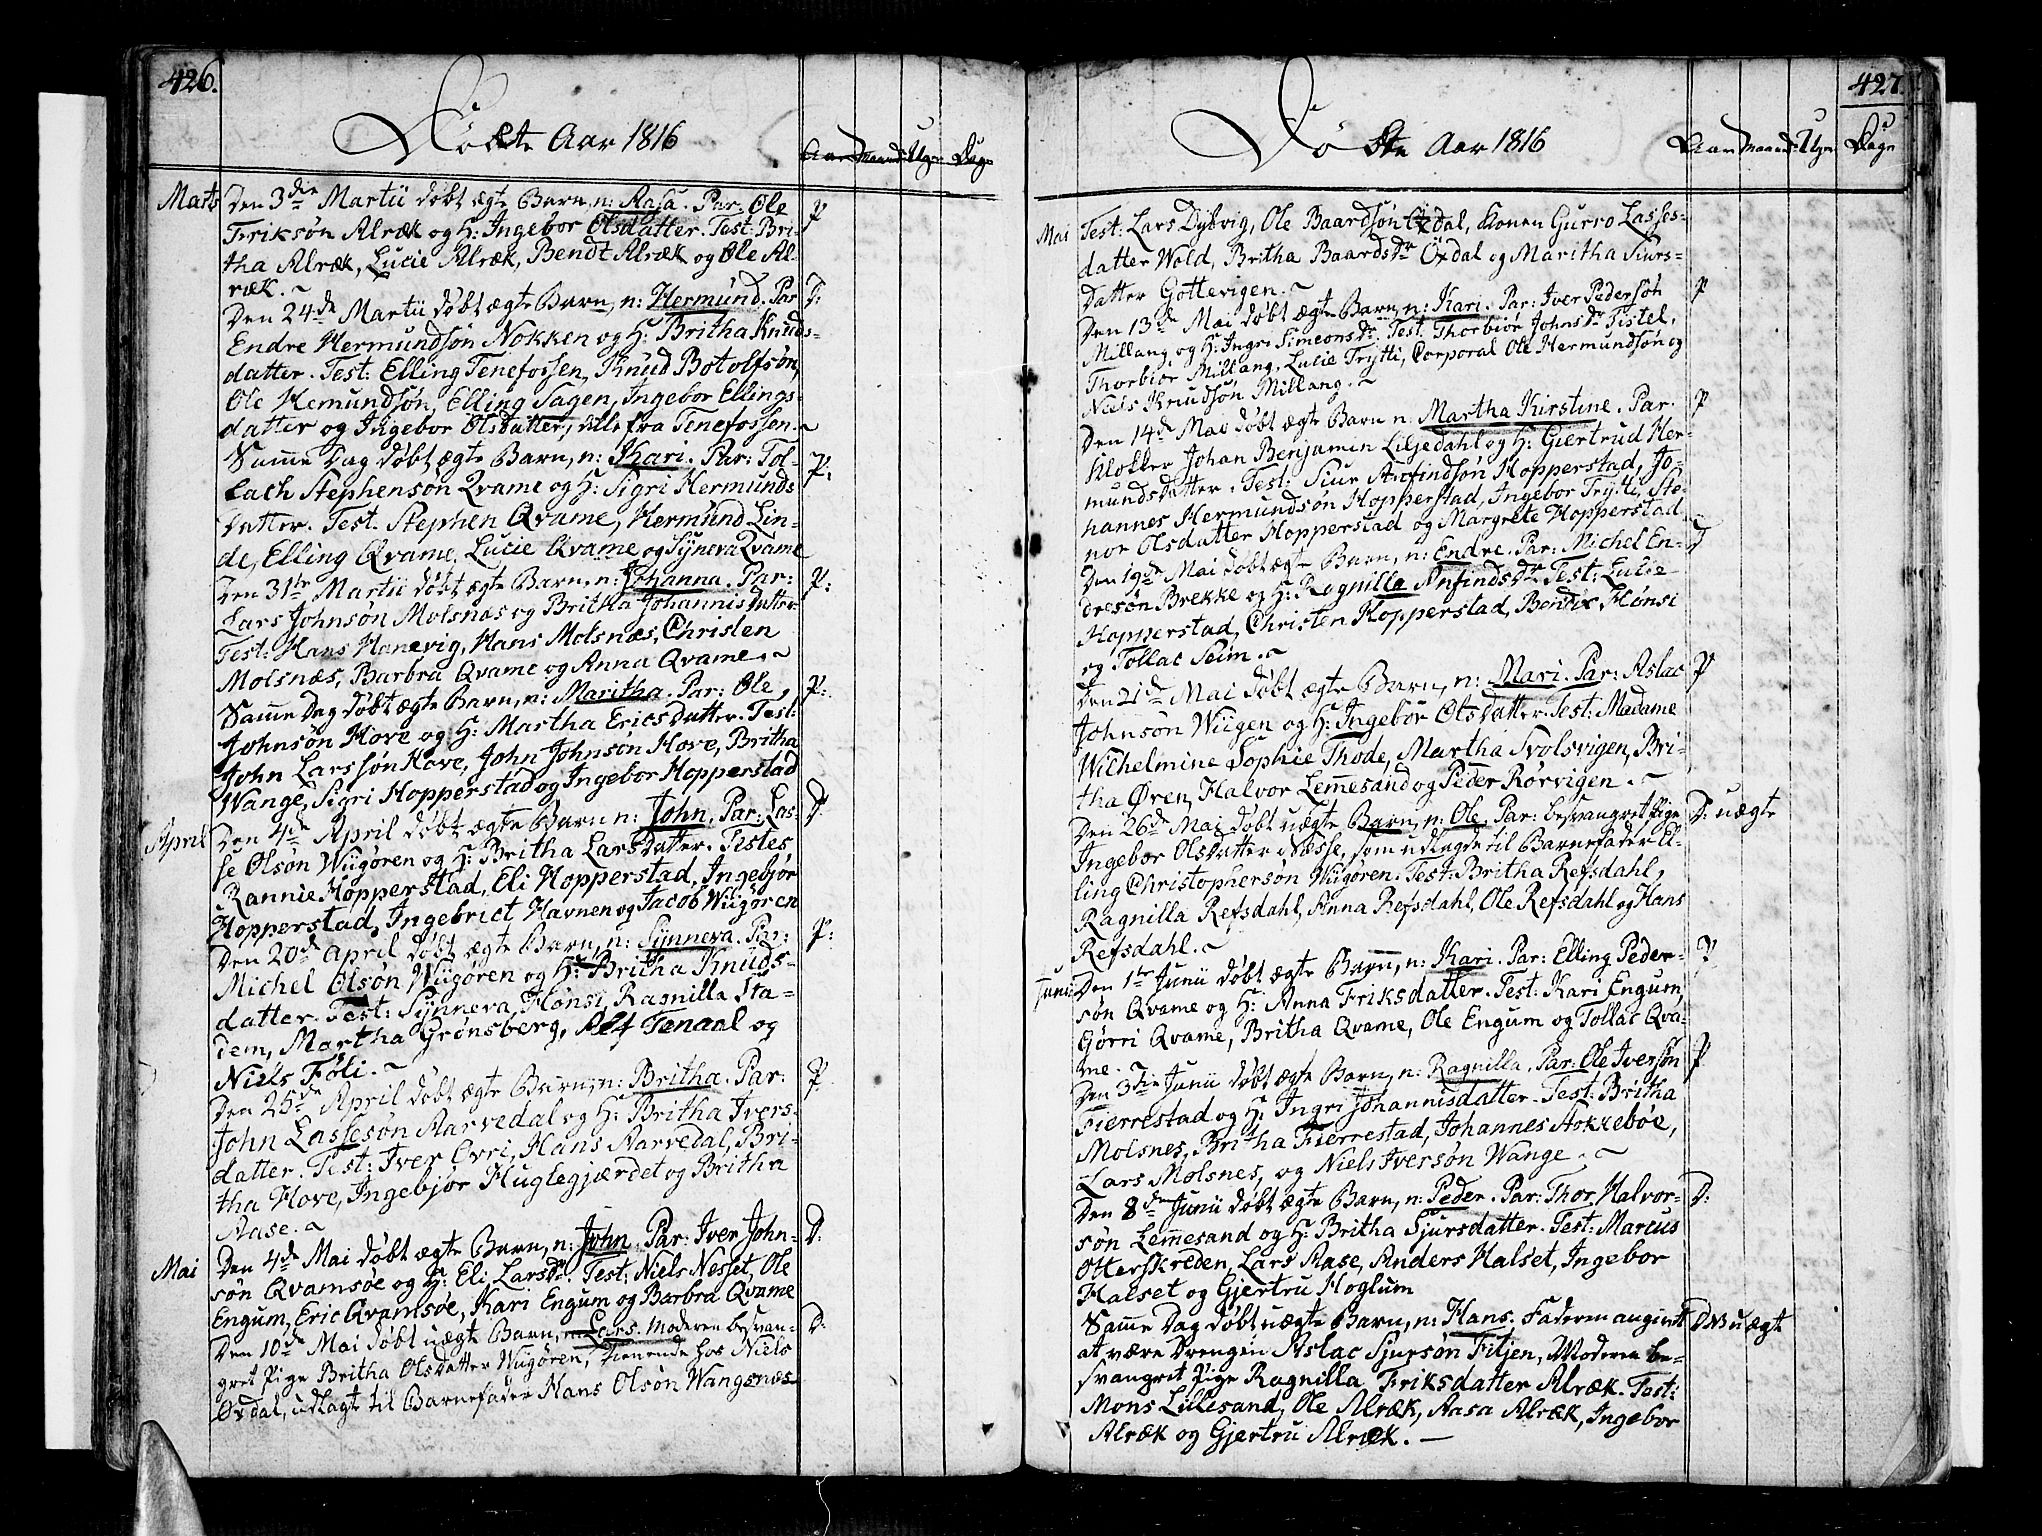 426.
Aar 1816
Aar Maand: Uger Dage
Marts Den 3die Martii døbt ægte Barn, n: Aasa. Par. Ole P
Friksøn Alræk og H: Ingebor Olsdatter. Test: Bri-
tha Alræk, Lucie Alræk, Bendt Alræk og Ole Al-
ræk. ~
Den 24de Martii døbt ægte Barn, n: Hermund. Par D:
Endre Hermundsøn Nokken og H: Britha Knuds-
datter. Test: Elling Tenefossen, Knud Botolfsøn,
Ole Hemundsøn, Elling Sagen, Ingebor Ellings-
datter og Ingebor Olsdatter, alle fra Tenefossen. ~
Samme Dag døbt ægte Barn, n: Kari. Par: Tol- P:
lach Stephensøn Qvame og H: Sigri Hermunds
datter. Test. Stephen Qvame, Hermund Lin-
de, Elling Qvame, Lucie Qvame og Syneva Qvame
Den 31te Martii døbt ægte Barn, n: Johanna. Par: P:
Lars Johnsøn Molsnæs og Britha Johannisdatter
Test: Hans Hanevig, Hans Molsnæs, Christen
Molsnæs, Barbra Qvame og Anna Qvame. ~
Samme Dag døbt ægte Barn, n: Maritha. Par: Ole P:
Johnsøn Hove og H: Martha Ericsdatter. Test:
John Larssøn Hove, John Johnsøn Hove, Britha
Wange, Sigri Hopperstad og Ingebor Hopperstad
April Den 4de April døbt ægte Barn n: John. Par: Las- D
se Olsøn Wiigøren og H: Britha Larsdatter. Testes
Rannie Hopperstad, Eli Hopperstad, Ingebjør
Hopperstad, Ingebrict Havnen og Jacob Wiigøren
Den 20de April døbt ægte Barn, n: Synneva. Par: P:
Michel Olsøn Wiigøren og H: Britha Knuds-
datter. Test: Synneva Hønsi, Ragnilla Sta-
dem, Martha Grønsberg, Alf Tenaal og
Niels Føli. ~
Den 25de April døbt ægte Barn, n: Britha. Par: P.
John Lassesøn Aarvedal og H: Britha Ivers-
datter. Test: Iver Ovri, Hans Aarvedal, Bri-
tha Hove, Ingebjør Huglegjærdet og Britha
Aase. ~
Mai Den 4de Mai døbt ægte Barn, n: John. Par: Iver John- D:
søn Qvamsøe og H: Eli Larsdr. Test: Niels Nesset, Ole
Engum, Eric Qvamsøe, Kari Engum og Barbra Qvame
Den 10de Mai døbt uægte Barn, n: Lars. Moderen besvan- D:
gret Pige Britha Olsdatter Wiigøren, tienende hos Niels
Øxdal, udlagte til Barnefader Hans Olsøn Wangsnæs
427.
Aar 1816
Aar Maand: Uger Dage
Mai Test: Lars Dybvig, Ole Baardsøn Øxdal, Konen Gurro Lasses-
datter Wold, Britha Baardsdr Øxdal og Maritha Siurs-
datter Gottevigen. ~
Den 13de Mai døbt ægte Barn, n: Kari. Par: Iver Pedersøn P
Millang, og H: Ingri Simeonsdr. Test. Thorbiør Johnsdr Tistel,
Thorbiør Millang, Lucie Trytti, Corporal Ole Hermundsøn og
Niels Knudsøn Millang. ~
Den 14de Mai døbt ægte Barn n: Martha Kirstine. Par. P
Klokker Johan Benjamin Liljedahl og H: Giertrud Her-
mundsdatter. Test: Siur Anfindsøn Hopperstad, Jo-
hannes Hermundsøn Hopperstad, Ingebor Trytti, Ste-
nor Olsdatter Hopperstad og Margrete Hopperstad
Den 19de Mai døbt ægte Barn, n: Endre. Par: Michel En- D
dresøn Brekke og H: Ragnilla Anfindsdr. Test: Lucie
Hopperstad, Christen Hopperstad, Bendix Hønsi
og Tollac Seim. ~
Den 21de Mai døbt ægte Barn, n: Mari. Par: Aslac P
Johnsøn Wiigen og H: Ingebor Olsdatter. Test: Madame
Wilhelmine Sophie Thode, Martha Svolsvigen, Bri-
tha Øren, Halvor Lemmesand og Peder Rørvigen. ~
Den 26de Mai døbt uægte Barn, n: Ole. Par: besvangret Pige D: uægte
Ingebor Olsdatter Næsse, som udlagde til Barnefader El-
ling Christophersøn Wiigøren. Test: Britha Refsdahl,
Ragnilla Refsdahl, Anna Refsdahl, Ole Refsdahl og Hans
Refsdahl. ~
Junii Den 1te Junii døbt ægte Barn, n: Kari. Par: Elling Peder- P
søn Qvame og H: Anna Friksdatter. Test: Kari Engum,
Gjørri Qvame, Britha Qvame, Ole Engum og Tollac Qva-
me. ~
Den 3die Junii døbt ægte Barn, n: Ragnilla. Par: Ole Iversøn P
Fierrestad og H: Ingri Johannisdatter. Test: Britha
Molsnes, Britha Fierrestad, Johannes Hokkebøe,
Lars Molsnes, og Niels Iversøn Wange. ~
Den 8de Junii døbt ægte Barn, n: Peder. Par: Thor Halvor- D:
søn Lemmesand og H: Britha Sjursdatter. Test: Marcus
Otterskreden, Lars Aase, Anders Halset, Ingebor
Halset og Gjertru Hoglum
Samme Dag døbt uægte Barn, n: Hans. Faderen angivet D uægt
at være Drengen Aslac Sjursøn Filjen, Moderen be-
svangrit Pige Ragnilla Friksdatter Alræk. Test:
Mons Lillesand, Ole Alræk, Aasa Alræk, Ingebor
Alræk og Gjertru Alræk. —